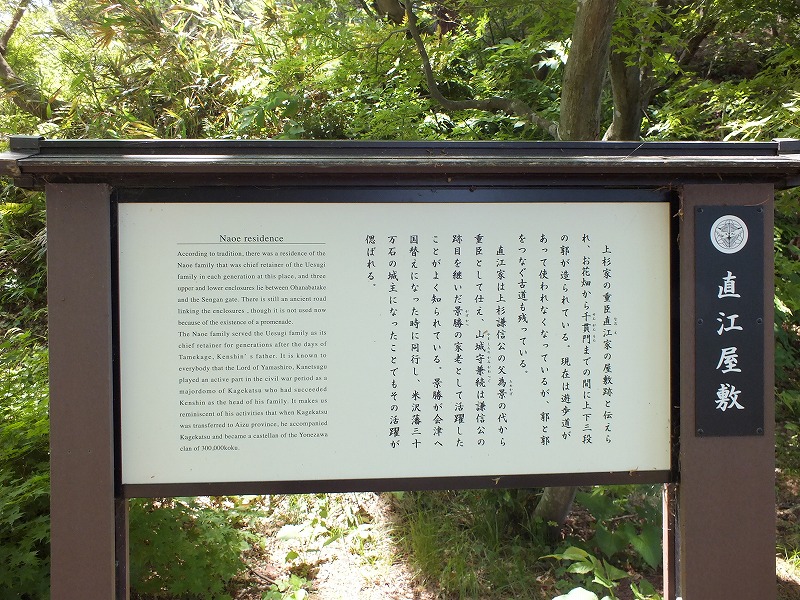 直江屋敷
上杉家の重臣直江家の屋敷跡と伝えら
れ、お花畑から千貫門までの間に上下三段
の郭が造られている。現在は遊歩道が
あって使われなくなっているが、郭と郭
をつなぐ古道も残っている。
直江家は上杉謙信公の父為景の代から
重臣として仕え、山城守兼続は謙信公の
跡目を継いだ景勝の家老として活躍した
ことがよく知られている。景勝が会津へ
国替えになった時に同行し、米沢藩三十
万石の城主になったことでもその活躍が
偲ばれる。
Naoe residence
According to tradition, there was a residence of the
Naoe family that was chief retainer of the Uesugi
family in each generation at this place, and three
upper and lower enclosures lie between Ohanabatake
and the Sengan gate. There is still an ancient road
linking the enclosures , though it is not used now
because of the existence of a promenade.
The Naoe family served the Uesugi family as its
chief retainer for generations after the days of
Tamekage, Kenshin' s father. It is known to
everybody that the Lord of Yamashiro, Kanetsugu
played an active part in the civil war period as a
majordomo of Kagekatsu who had succeeded
Kenshin as the head of his family. It makes us
reminiscent of his activities that when Kagekatsu
was transferred to Aizu province, he accompanied
Kagekatsu and became a castellan of the Yonezawa
clan of 300,000koku.